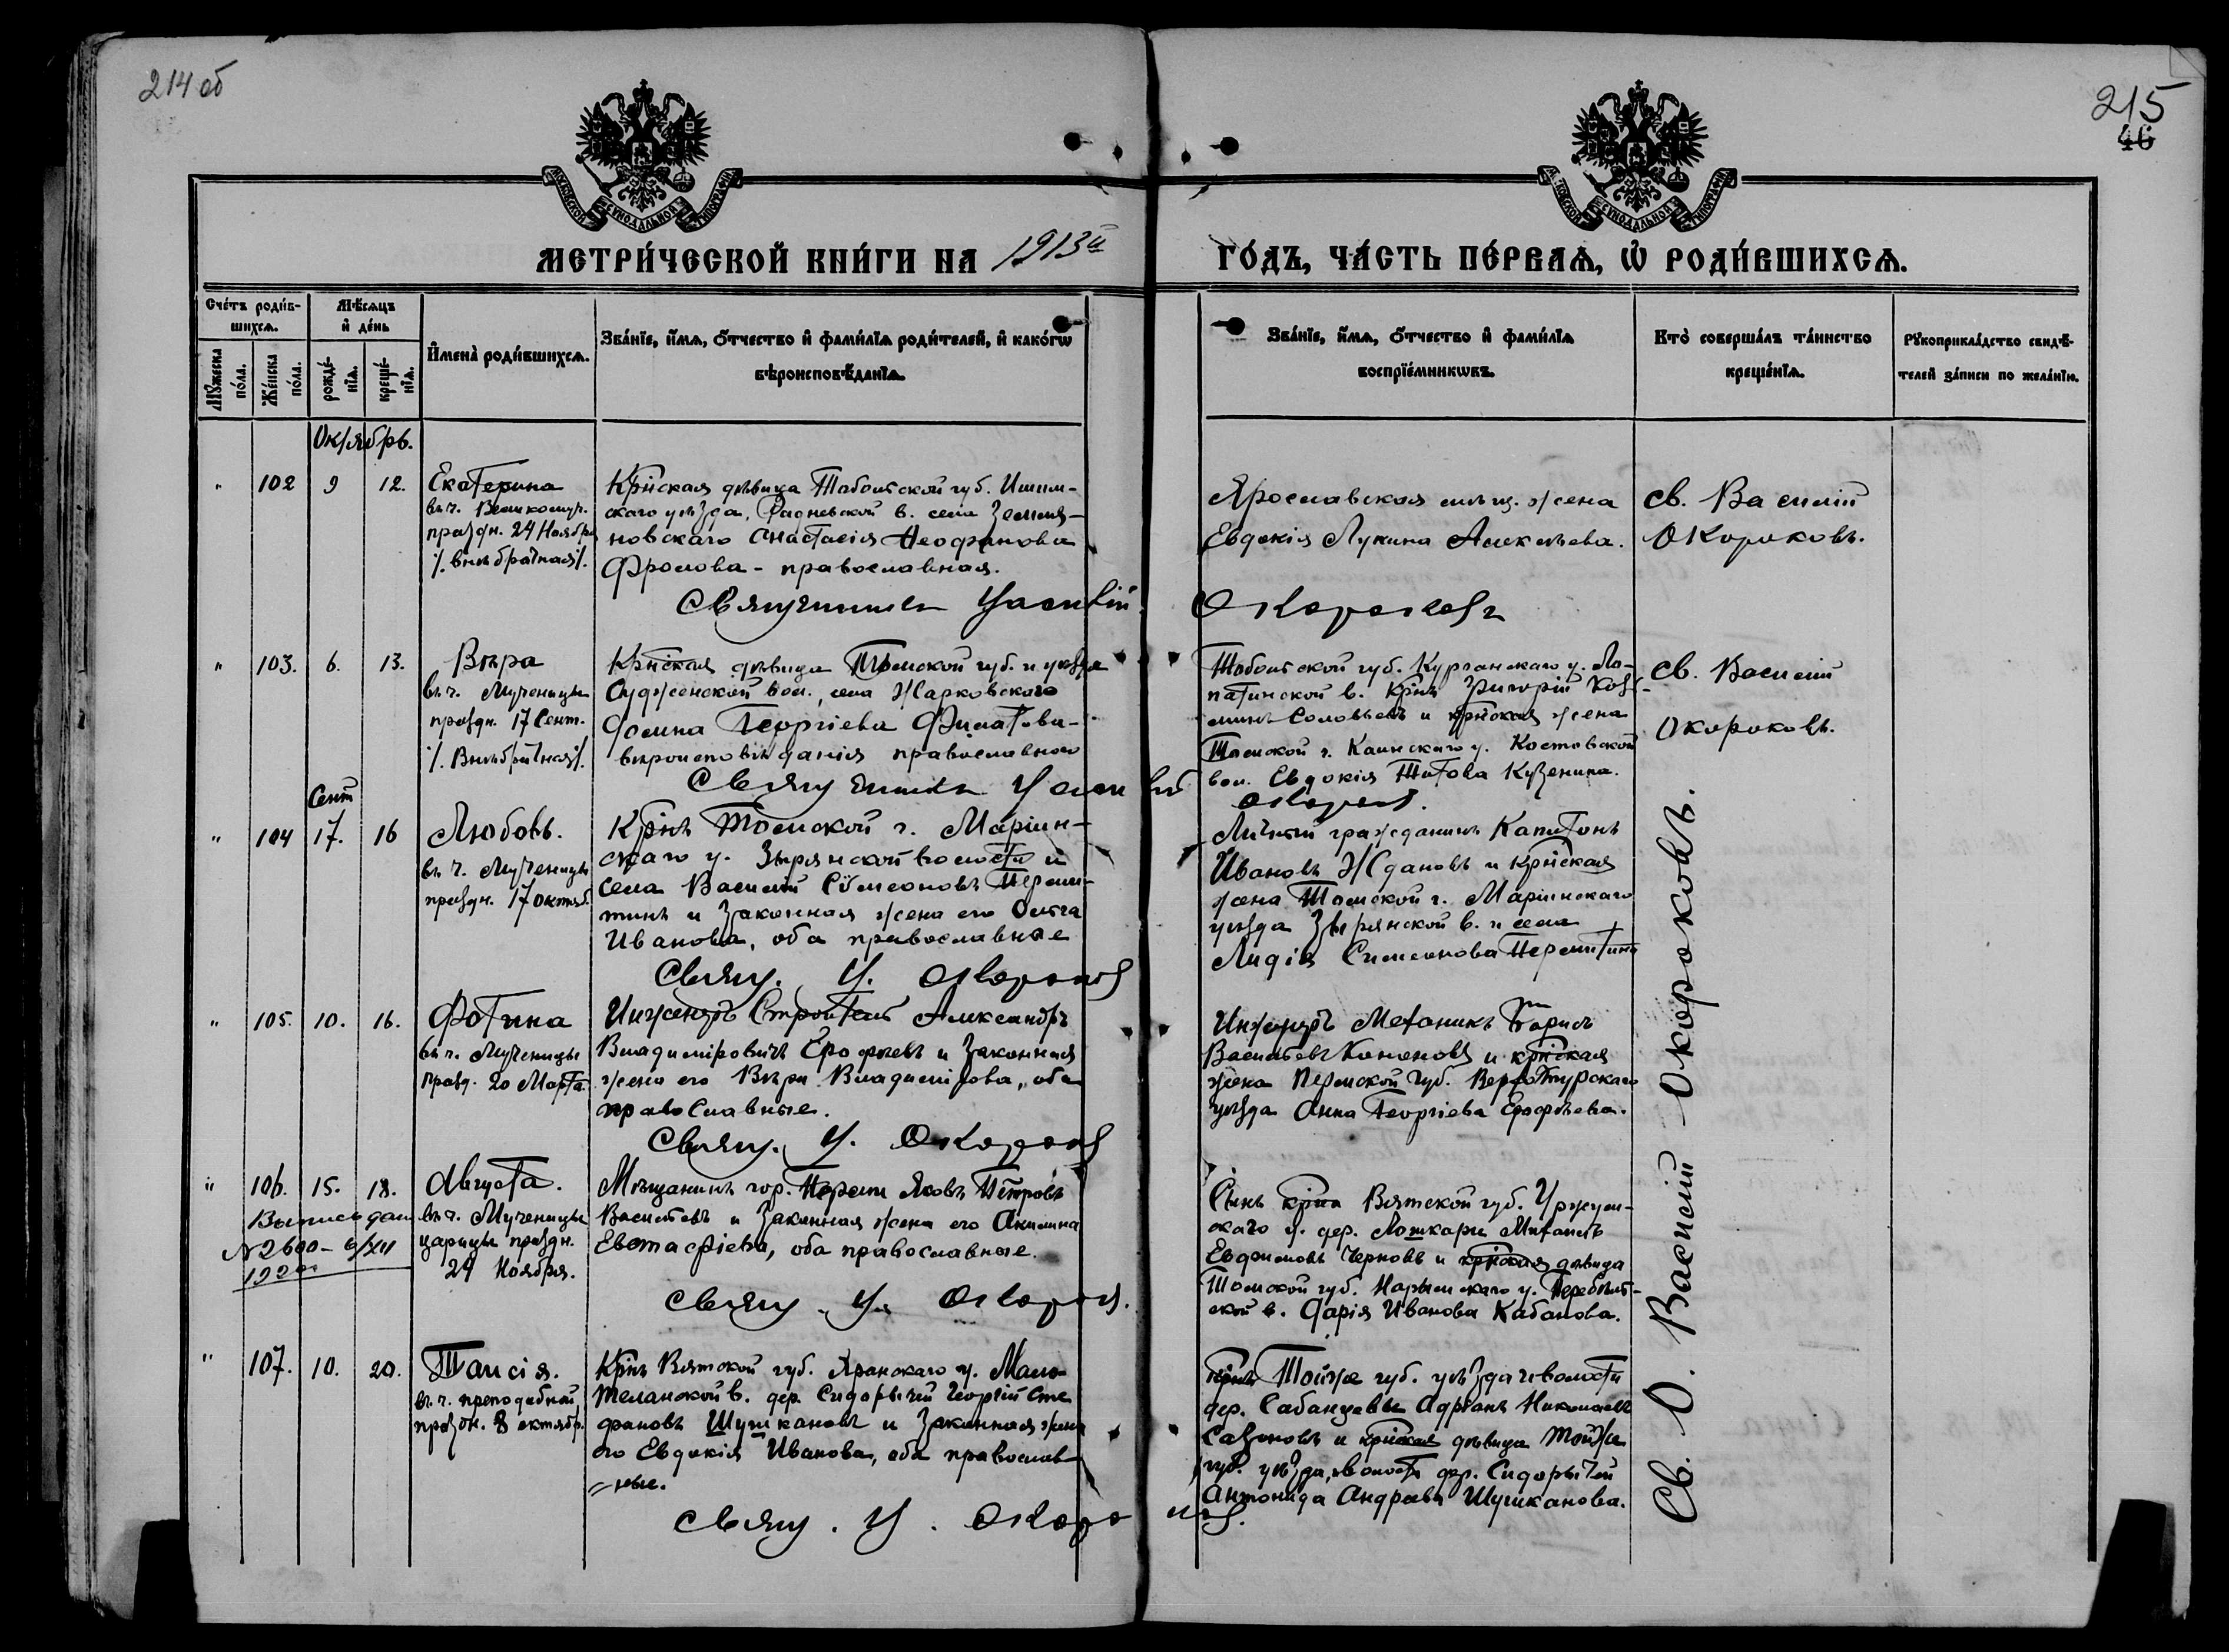 214 об
215
46
МОСКОВСКОЙ СѴНОДАЛЬНОЙ ТИПОГРАФІИ
МЕТРИ́ЧЕСКОЙ КНИ́ГИ НА 1913й
ГО́ДЪ, ЧА́СТЬ ПЕ́РВАѦ, Ѡ҆ РОДИ́ВШИХСѦ.
Сче́тъ роди́в-
шихсѧ.
Мꙋ́жеска по́ла.
Же́нска по́ла.
Мѣ́сѧцъ
и҆ де́нь
рожде́-
нїѧ.
креще́-
нїѧ.
И҆мена̀ роди́вшихсѧ.
Зва́нїе, и҆́мѧ, ѻ҆́тчество и҆ фами́лїѧ роди́телей, и҆ како́гѡ
вѣроисповѣ́данїѧ.
Зва́нїе, и҆́мѧ, ѻ҆́тчество и҆ фами́лїѧ
воспрїе́мникѡвъ.
Кто̀ соверша́лъ та́инство
креще́нїѧ.
Рꙋкоприкла́дство свидѣ́-
телей за́писи по жела́нїю.
Октябрь.
" 102 9 12.
Екатерина
въ ч. Великомуч.
праздн. 24 Ноября
/. внѣбрачная/.
Крнская дѣвица Тобольской губ. Ишим-
скаго уѣзда, в. села
новскаго Анастасія Неофанова
Фролова - православная.
Священникъ Василій Окороковъ
Ярославская мѣщ. жена
Евдокія Лукина Алексѣева.
св. Василій
Окороковъ.
" 103. 6. 13.
Вѣра
въ ч. Мученицы
праздн. 17 Сент.
/. Внѣбрачная/.
Крнская дѣвица Томской губ. и уѣзда
Судженской вол., села Жарковскаго
Домна Георгіева Филатова-
вѣроисповѣданія православнаго
Священникъ Василій Окороковъ.
Тобольской губ. Курганскаго у. Ло-
патинской в. Крнъ Григорій Коз-
минъ Соловьевъ и крнская жена
Томской г. Каинскаго у.
вол. Евдокія Титова Кузенина.
св. Василій
Окороковъ.
Сент
" 104 17. 16
Любовь.
въ ч. Мученицы
праздн. 17 октяб.
Крнъ Томской г. Маріин-
скаго у. Зырянской волости и
села Василій Сѵмеоновъ Перми-
тинъ и законная жена его Ольга
Иванова, оба православные
Свящ. В. Окороковъ
Личный гражданинъ Капитонъ
Ивановъ Ждановъ и крнская
жена Томской г. Маріинскаго
уѣзда Зырянской в. и села
Лидія Симеонова Пермитина
" 105. 10. 16.
Фотина
въ ч. Мученицы
празд. 20 Марта.
Инженеръ Строитель Александръ
Владиміровичъ Ерофѣевъ и законная
жена его Вѣра Владимірова, оба
православные.
Свящ. В. Окороковъ
Инженеръ Механикъ Борисъ
Васильевъ Кононовъ и крнская
жена Пермской губ. Верхотурскаго
уѣзда Анна Георгіева Ерофѣева.
" 106. 15. 18.
Августа.
въ ч. Мученицы
царицы праздн.
24 Ноября.
Выпись дан
№ 2600 -
Мѣщанинъ гор. Перми Яковъ Петровъ
Васильевъ и законная жена его Акилина
Евстафіева, оба православные.
Свящ. В. Окороковъ.
Сынъ крна Вятской губ. Уржум-
скаго у. дер. Лошкари Михаилъ
Евфимовъ Черновъ и крнская дѣвица
Томской губ. Нарымскаго у.
ской в. Дарія Иванова Кабанова.
" 107. 10. 20.
Таисія.
въ ч. преподобной
праздн. 8 октябр.
Крнъ Вятской губ. Яранскаго у. Мало-
в. дер. Сидорычи Георгій Сте-
фановъ Шушкановъ и законная жена
его Евдокія Иванова, оба православ-
ные.
Свящ. В. Окороковъ.
Крнъ Той же губ. уѣзда и волости
дер. Сабанцевы Адріанъ Николаевъ
Сазоновъ и крнская дѣвица той же
губ. уѣзда, волости дер. Сидорычей
Антонида Андреева Шушканова.
Св. О. Василій Окороковъ.